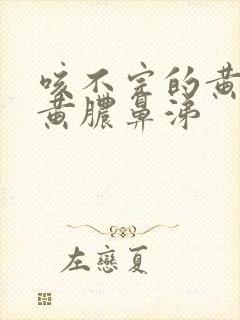 咳不完的黄
黄膿鼻涕
左戀夏